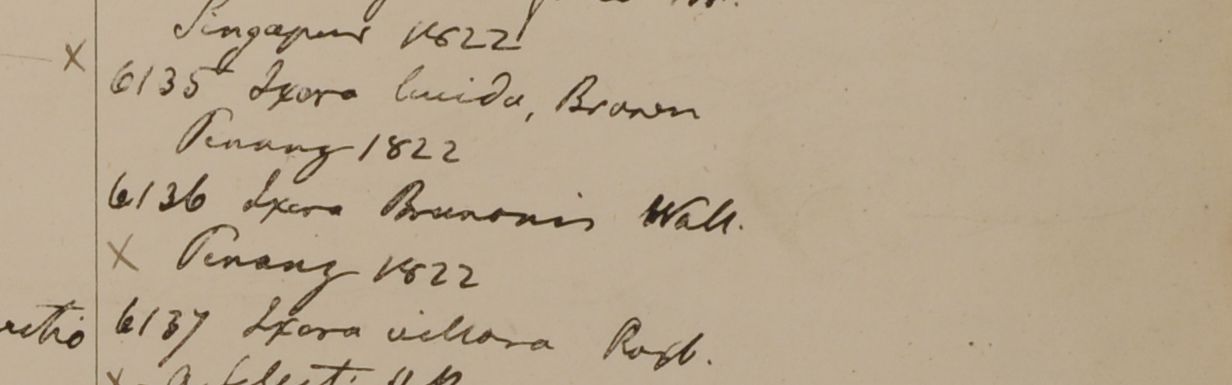 Singapur 1822
× 6135 Ixora lucida, Brown
Penang 1822
6136 Ixera Brunonis Wall.
× Penang 1822
6137 Ixora villosa Roxb.
×